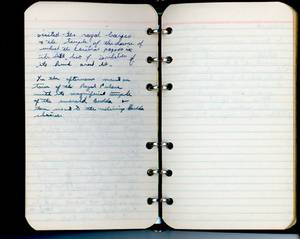 visited the royal barges
& the temple of the dawn of
which the central pagoda is
the
its kind
In the afternoon went on
tour of the Royal Palace
with its magnificent temple
of the emerald Buddha &
then went to the reclining Buddha